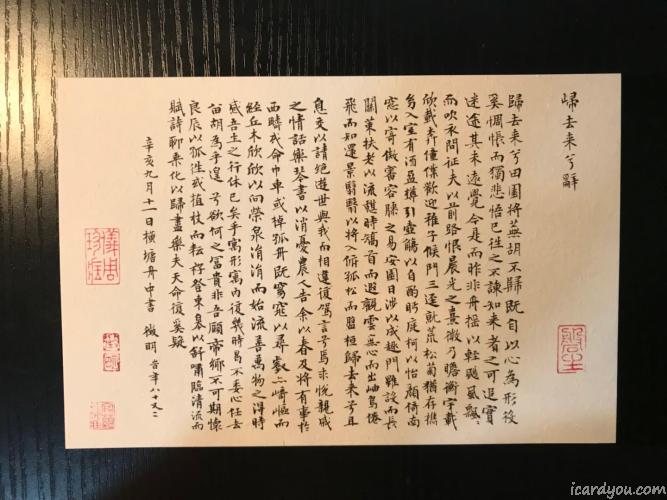 歸去来兮辭
歸去来兮田園將蕪胡不歸既自以心為形役
奚惆悵而獨悲悟已往之不諫知来者之可追實
迷途其未遠覺今是而昨非舟摇以輕颺風飄〻
而吹衣問征夫以前路恨晨光之熹微乃瞻衡宇載
欣載奔僮僕歡迎稚子候門三逕就荒松菊猶存攜
幼入室有酒盈樽引壺觴以自酌眄庭柯以怡顏倚南
窓以寄傲審容膝之易安園日涉以成趣門雖設而長
關策扶老以流憩時矯首而遐觀雲無心而出岫鳥倦
飛而知還景翳翳以將入撫孤松而盤桓歸去来兮且
息交以請絕遊世與我而相遺復駕言兮焉求悅親戚
之情話樂琴書以消憂農人告余以春及將有事於
西疇或命巾車或棹孤舟既窈窕以尋壑亦崎嶇而
經丘木欣欣以向榮泉涓涓而始流善萬物之得時
感吾生之行休已矣乎寓形寓內復幾時曷不委心任去
留胡為乎遑兮欲何之富貴非吾願帝鄉不可期懷
良辰以孤往或植杖而耘耔登東皋以舒嘯臨清流而
賦詩聊乘化以歸盡樂夫天命復奚疑
辛亥九月十一日橫塘舟中書 徵明 年八十又二
icardyou.com